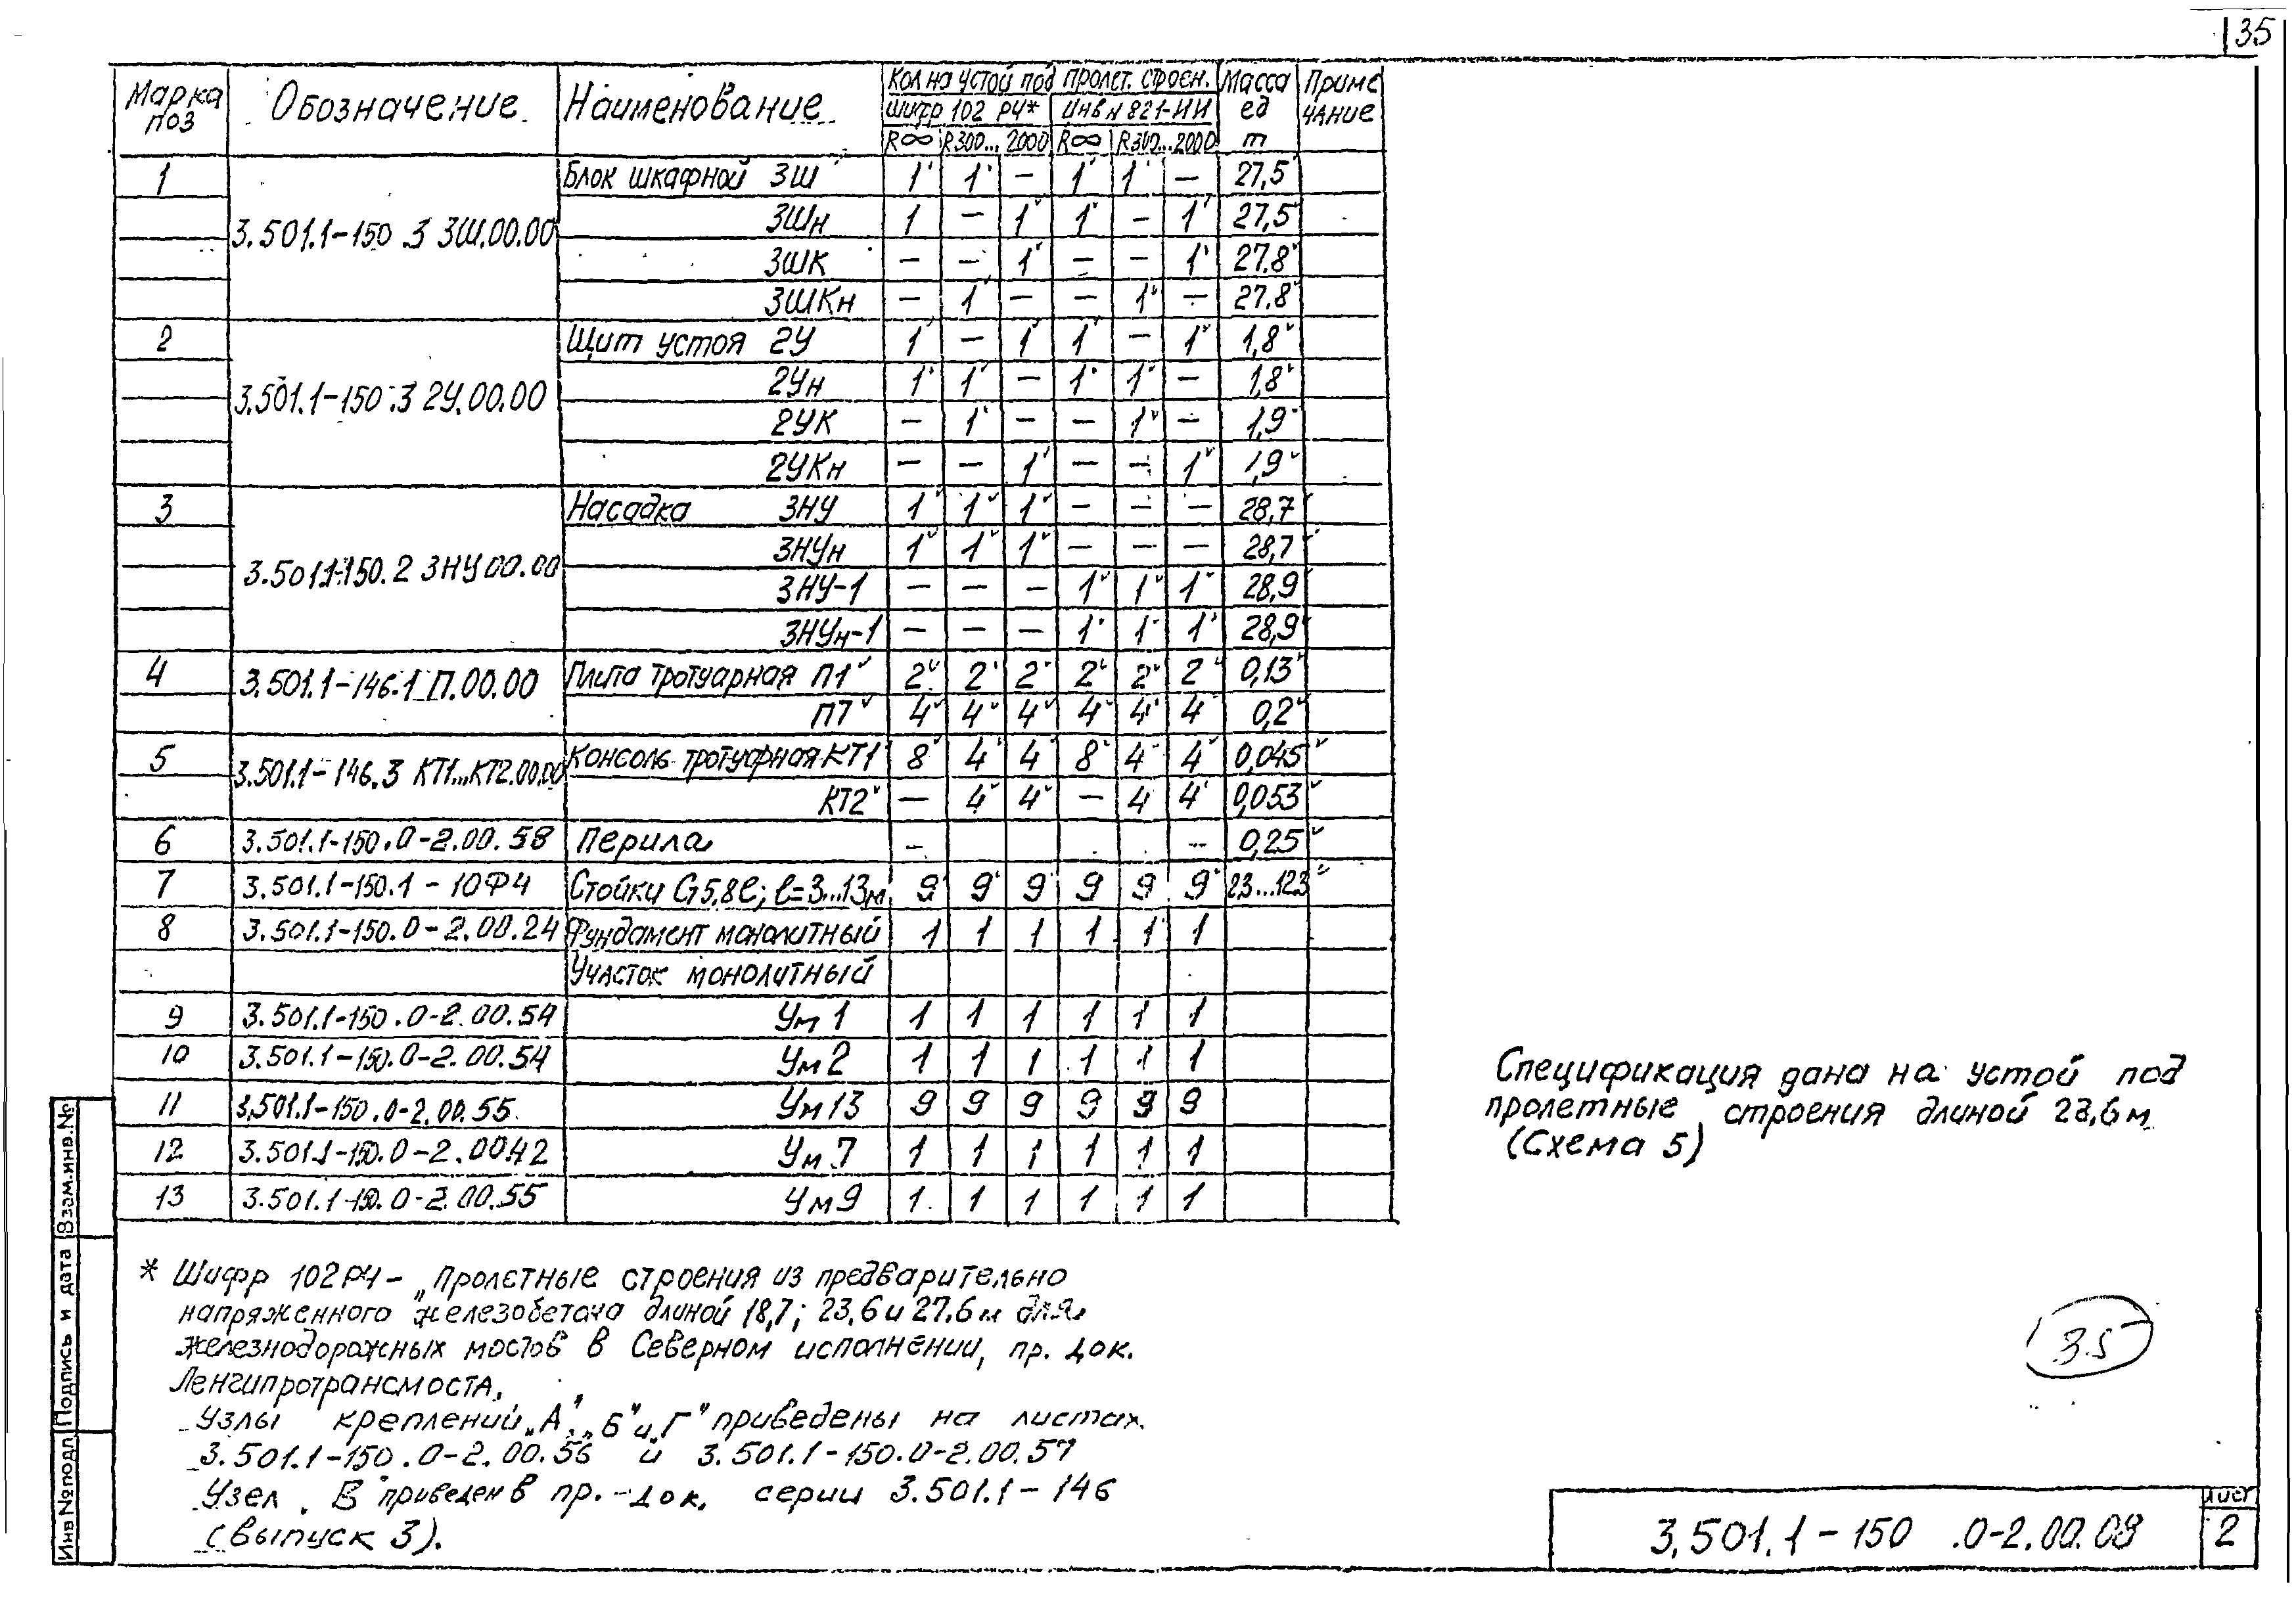 35
Марка поз | Обозначение | Наименование | Кол на устой под пролет. строен. | Масса ед т | Приме чание
шифр 102 РЧ* | Инв № 821-ИИ
R∞ | R300... 2000 | R∞ | R300...2000
1 | 3.501.1-150.3 3Ш.00.00 | Блок шкафной 3Ш | 1 | 1 | – | 1 | 1 | – | 27,5
3Шн | 1 | – | 1 | 1 | – | 1 | 27,5
3ШК | – | – | 1 | – | – | 1 | 27.8
3ШКн | – | 1 | – | – | 1 | – | 27.8
2 | 3.501.1-150.3 2У.00.00 | Щит устоя 2У | 1 | – | 1 | 1 | – | 1 | 1,8
2Ун | 1 | 1 | – | 1 | 1 | – | 1,8
2УК | – | 1 | – | – | 1 | – | 1,9
2УКн | – | – | 1 | – | – | 1 | 1,9
3 | 3.501.1-150.2 3НУ 00.00 | Насадка 3НУ | 1 | 1 | 1 | – | – | – | 28,7
3НУн | 1 | 1 | 1 | – | – | – | 28,7
3НУ-1 | – | – | – | 1 | 1 | 1 | 28,9
3НУн-1 | – | – | – | 1 | 1 | 1 | 28,9
4 | 3.501.1-146.1 П.00.00 | Плита тротуарная П1 | 2 | 2 | 2 | 2 | 2 | 2 | 0,13
П7 | 4 | 4 | 4 | 4 | 4 | 4 | 0,2
5 | 3.501.1-146.3 КТ1...КТ2.00.00 | Консоль тротуарная КТ1 | 8 | 4 | 4 | 8 | 4 | 4 | 0,045
КТ2 | – | 4 | 4 | – | 4 | 4 | 0,053
6 | 3.501.1-150.0-2.00.58 | Перила | – | – | 0,25
7 | 3.501.1-150.1-10Ф4 | Стойки G5,8l; l=3...13м | 9 | 9 | 9 | 9 | 9 | 9 | 2.3...12.3
8 | 3.501.1-150.0-2.00.24 | Фундамент монолитный | 1 | 1 | 1 | 1 | 1 | 1
Участок монолитный
9 | 3.501.1-150.0-2.00.54 | Ум 1 | 1 | 1 | 1 | 1 | 1 | 1
10 | 3.501.1-150.0-2.00.54 | Ум 2 | 1 | 1 | 1 | 1 | 1 | 1
11 | 3.501.1-150.0-2.00.55 | Ум 13 | 9 | 9 | 9 | 9 | 9 | 9
12 | 3.501.1-150.0-2.00.42 | Ум 7 | 1 | 1 | 1 | 1 | 1 | 1
13 | 3.501.1-150.0-2.00.55 | Ум 9 | 1 | 1 | 1 | 1 | 1 | 1
Спецификация дана на устой под
пролетные строения длиной 23,6 м
(Схема 5)
* Шифр 102РЧ – „Пролетные строения из предварительно
напряженного железобетона длиной 18,7; 23,6 и 27.6 м для
железнодорожных мостов в Северном исполнении, пр. док.
Ленгипротрансмоста.
Узлы креплений „А", „Б" и „Г" приведены на листах
3.501.1-150.0-2.00.56 и 3.501.1-150.0-2.00.57
Узел В приведен в пр.-док. серии 3.501.1-146
(выпуск 3).
35
Инв № подл | Подпись и дата | Взам.инв.№
3.501.1-150 .0-2.00.08
Лист
2